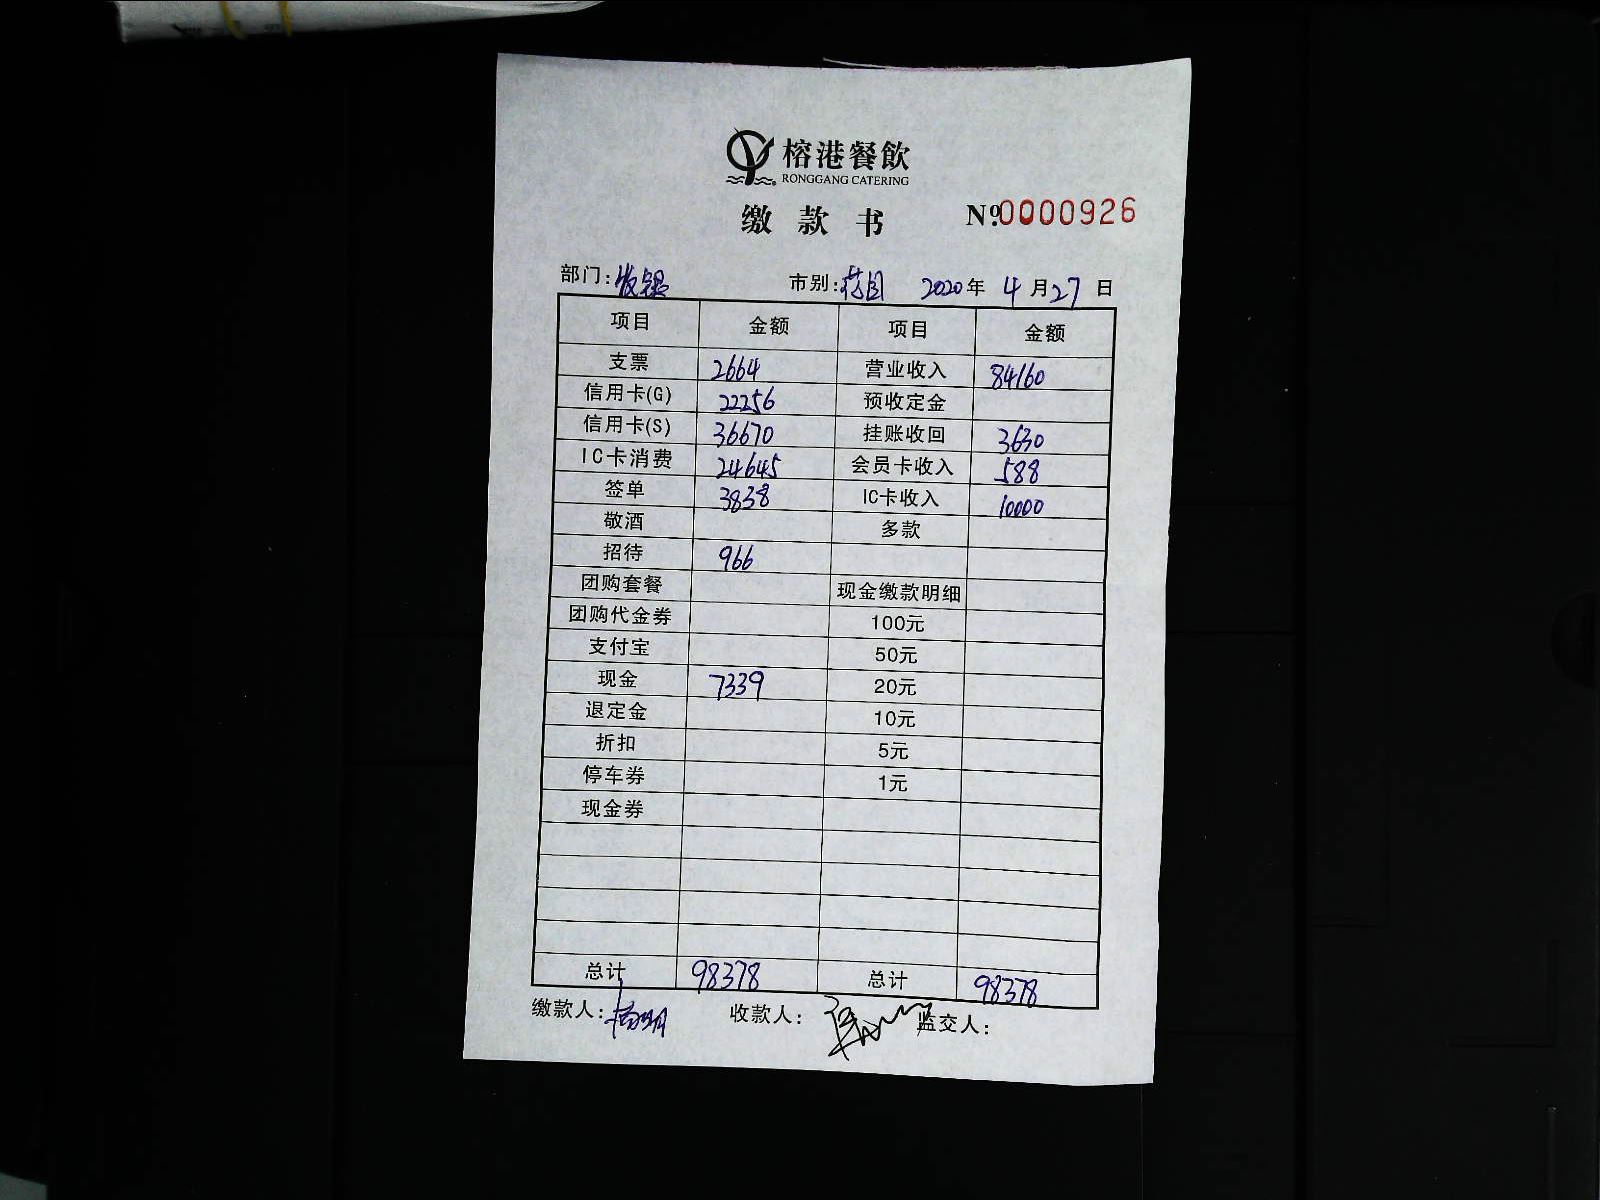 榕港餐飲
RONGGANG CATERING
缴款书 №0000926
部门:收银 市别: 2020年4月27日
项目 金额 项目 金额
支票 2664 营业收入 84160
信用卡(G) 22256 预收定金
信用卡(S) 36670 挂账收回 3630
IC卡消费 24645 会员卡收入 588
签单 3838 IC卡收入 10000
敬酒 多款
招待 966
团购套餐 现金缴款明细
团购代金券 100元
支付宝 50元
现金 7339 20元
退定金 10元
折扣 5元
停车券 1元
现金券
总计 98378 总计 98378
缴款人: 收款人: 监交人: